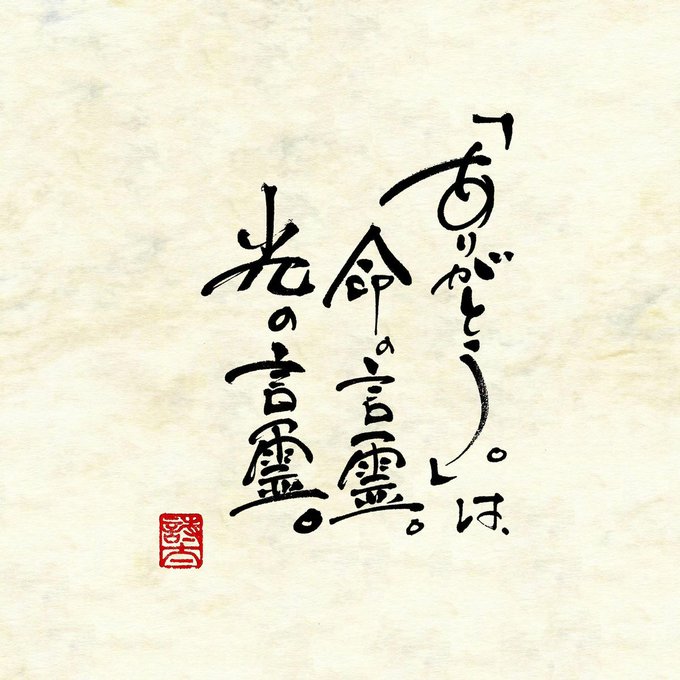 「ありがとう。」は、
命の言霊。
光の言霊。